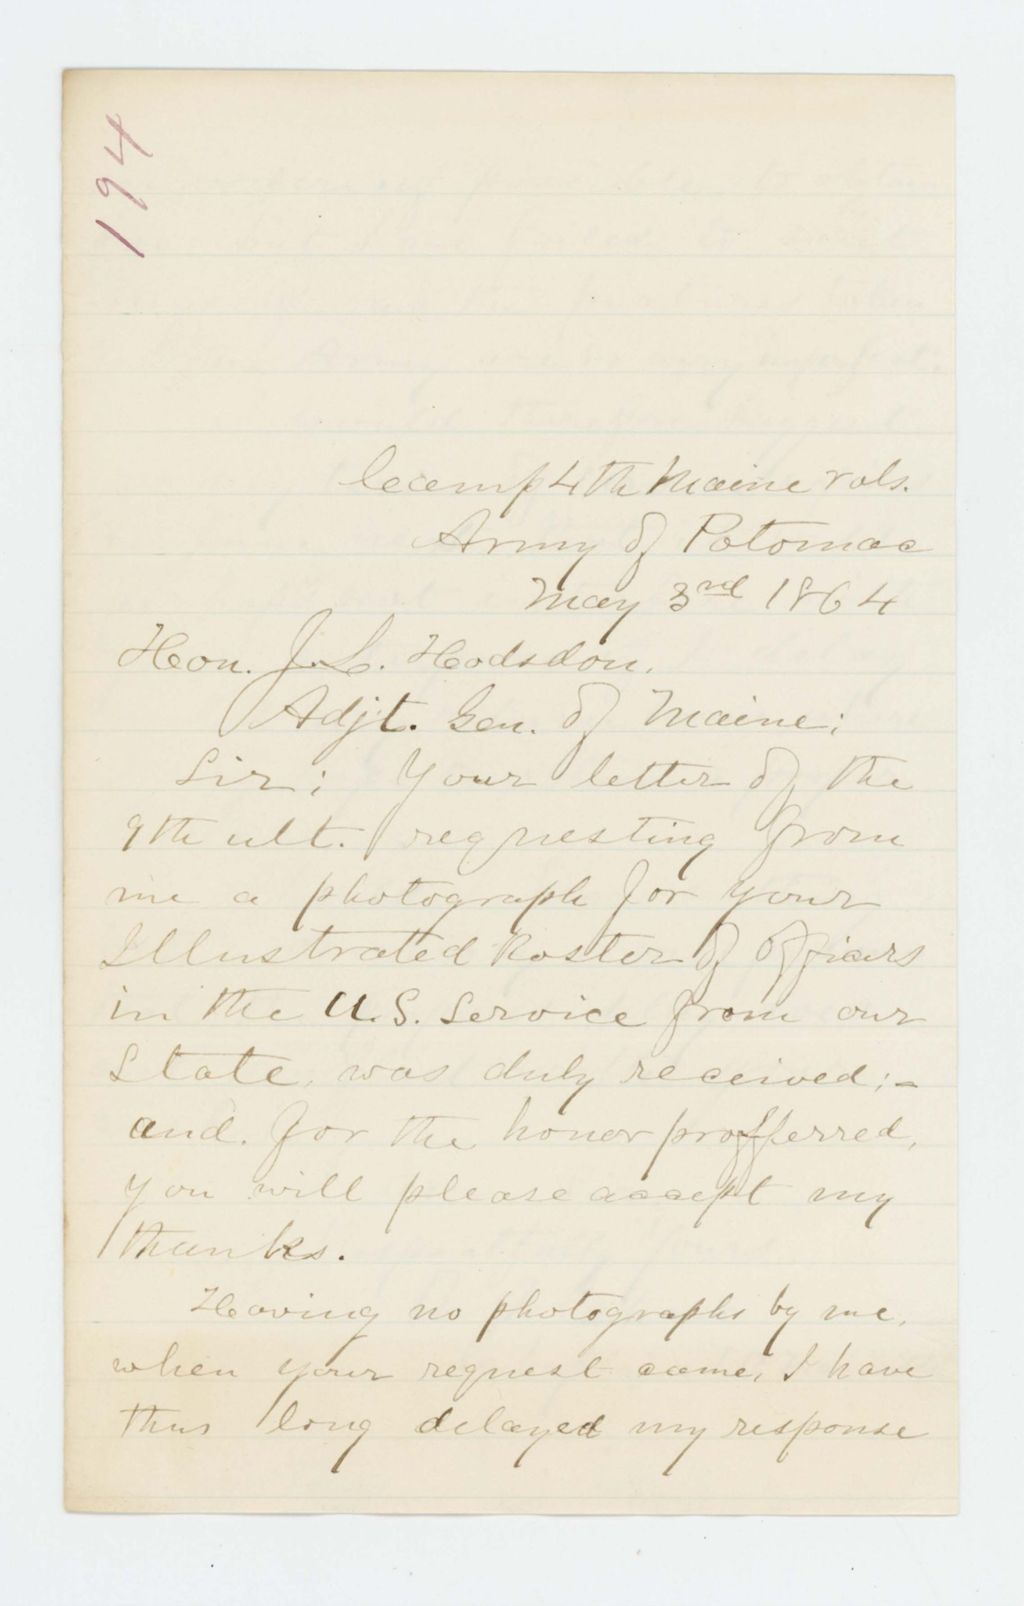 194
Camp 4th Maine Vols.
Army of Potomac
May 3rd 1864
Hon. J. L. Hodsdon.
Adjt. Gen. of Maine;
Sir; Your letter of the
9th ult. requesting from
me a photograph for your
Illustrated Roster of officers
in the U.S. Service from our
State, was duly received;-
and. for the honor profferred,
you will please accept my
thanks.
Having no photographs by me,
when your request came, I have
thus long delayed my response